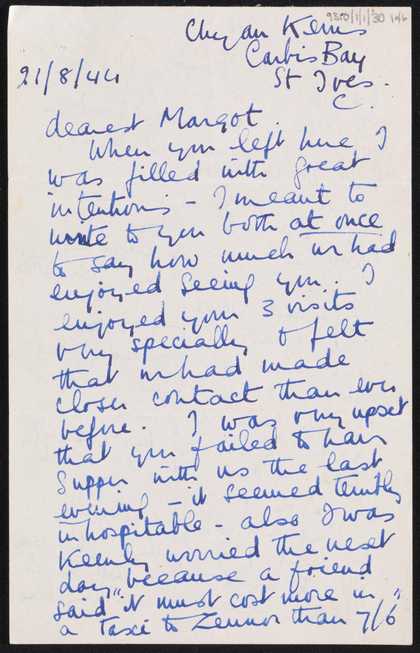 9310/1/1/30
Chy an Kerris
Carbis Bay
St Ives.
C.
21/8/44
dearest Margot.
When you left here I
was filled with great
intentions - I meant to
write to you both at once
to say how much we had
enjoyed seeing you. I
enjoyed your 3 visits
very specially & felt
that we had made
closer contact than ever
before. I was very upset
that you failed to have
Supper with us the last
evening - it seemed terribly
inhospitable - also I was
Keenly worried the next
day because a friend
said "it must cost more in
a Taxi to Zennor than 7/6"